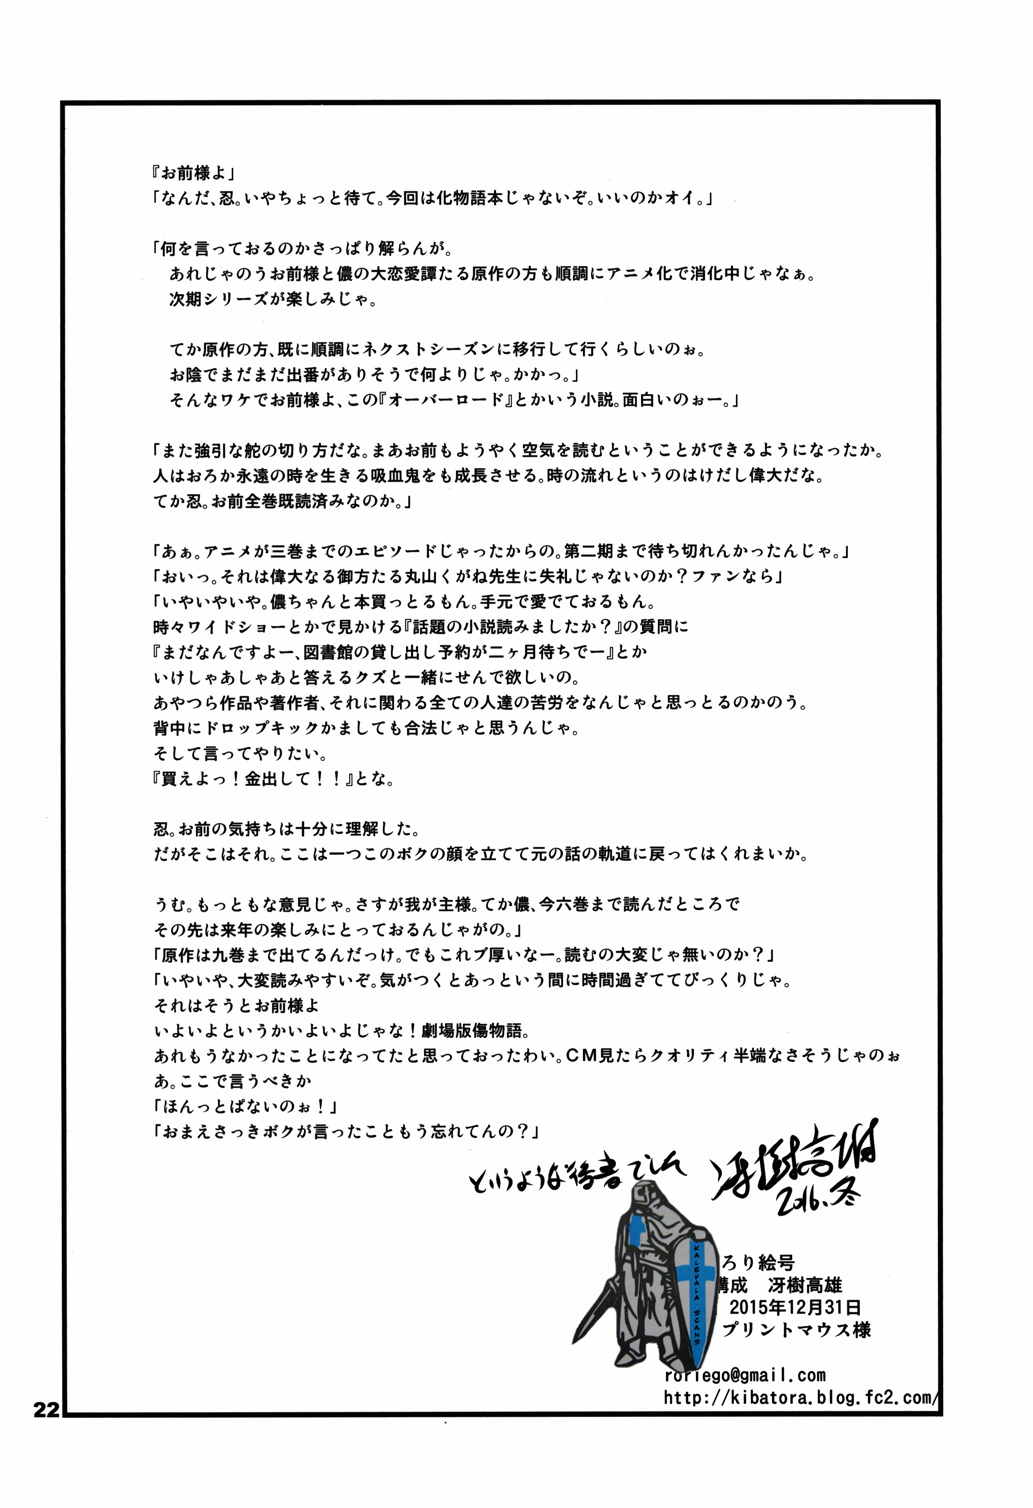 『お前様よ」
「なんだ、忍。いやちょっと待て。今回は化物語本じゃないぞ。いいのかオイ。」
「何を言っておるのかさっぱり解らんが。
あれじゃのうお前様と儂の大恋愛譚たる原作の方も順調にアニメ化で消化中じゃなぁ。
次期シリーズが楽しみじゃ。
てか原作の方、既に順調にネクストシーズンに移行して行くらしいのぉ。
お陰でまだまだ出番がありそうで何よりじゃ。かかっ。」
そんなワケでお前様よ、この『オーバーロード』とかいう小説。面白いのぉー。」
「また強引な舵の切り方だな。まあお前もようやく空気を読むということができるようになったか。
人はおろか永遠の時を生きる吸血鬼をも成長させる。時の流れというのはけだし偉大だな。
てか忍。お前全巻既読済みなのか。」
「あぁ。アニメが三巻までのエピソードじゃったからの。第二期まで待ち切れんかったんじゃ。」
「おいっ。それは偉大なる御方たる丸山くがね先生に失礼じゃないのか？ファンなら」
「いやいやいや。儂ちゃんと本買っとるもん。手元で愛でておるもん。
時々ワイドショーとかで見かける『話題の小説読みましたか？』の質問に
『まだなんですよー、図書館の貸し出し予約が二ヶ月待ちでー』とか
いけしゃあしゃあと答えるクズと一緒にせんで欲しいの。
あやつら作品や著作者、それに関わる全ての人達の苦労をなんじゃと思っとるのかのう。
背中にドロップキックかましても合法じゃと思うんじゃ。
そして言ってやりたい。
『買えよっ！金出して！！』とな。
忍。お前の気持ちは十分に理解した。
だがそこはそれ。ここは一つこのボクの顔を立てて元の話の軌道に戻ってはくれまいか。
うむ。もっともな意見じゃ。さすが我が主様。てか儂、今六巻まで読んだところで
その先は来年の楽しみにとっておるんじゃがの。」
「原作は九巻まで出てるんだっけ。でもこれブ厚いなー。読むの大変じゃ無いのか？」
「いやいや、大変読みやすいぞ。気がつくとあっという間に時間過ぎててびっくりじゃ。
それはそうとお前様よ
いよいよというかいよいよじゃな！劇場版傷物語。
あれもうなかったことになってたと思っておったわい。ＣＭ見たらクオリティ半端なさそうじゃのぉ
あ。ここで言うべきか
「ほんっとぱないのぉ！」
「おまえさっきボクが言ったこともう忘れてんの？」
というような後書でした 冴樹高雄
2016.冬
KALEVALA SCANS
ろり絵号
構成 冴樹高雄
2015年12月31日
プリントマウス様
roriego@gmail.com
http://kibatora.blog.fc2.com/
22